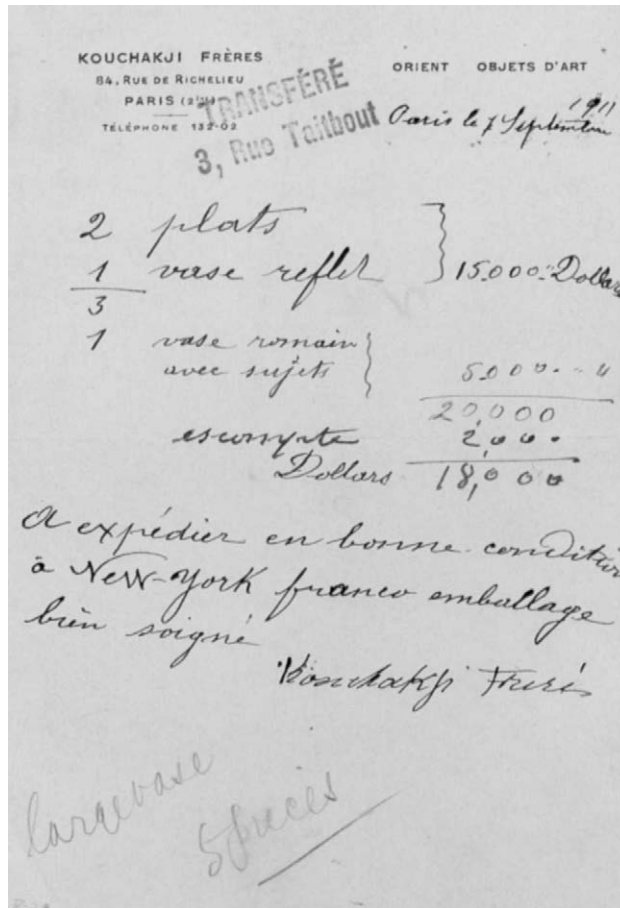 KOUCHAKJI FRÈRES
84, RUE DE RICHELIEU
PARIS
TÉLÉPHONE 132-02
ORIENT OBJETS D'ART
TRANSFÉRÉ
3, Rue Taitbout
1911
Paris le 7 Septembre
2 plats
1 vase reflet 15.000 Dollars
3
1 vase romain
avec sujets 5000 "
20,000
escompte 2,000
Dollars 18,000
A expédier en bonne condition
à New-York franco emballage
bien soigné
Kouchakji Frères
large vase
5 pièces